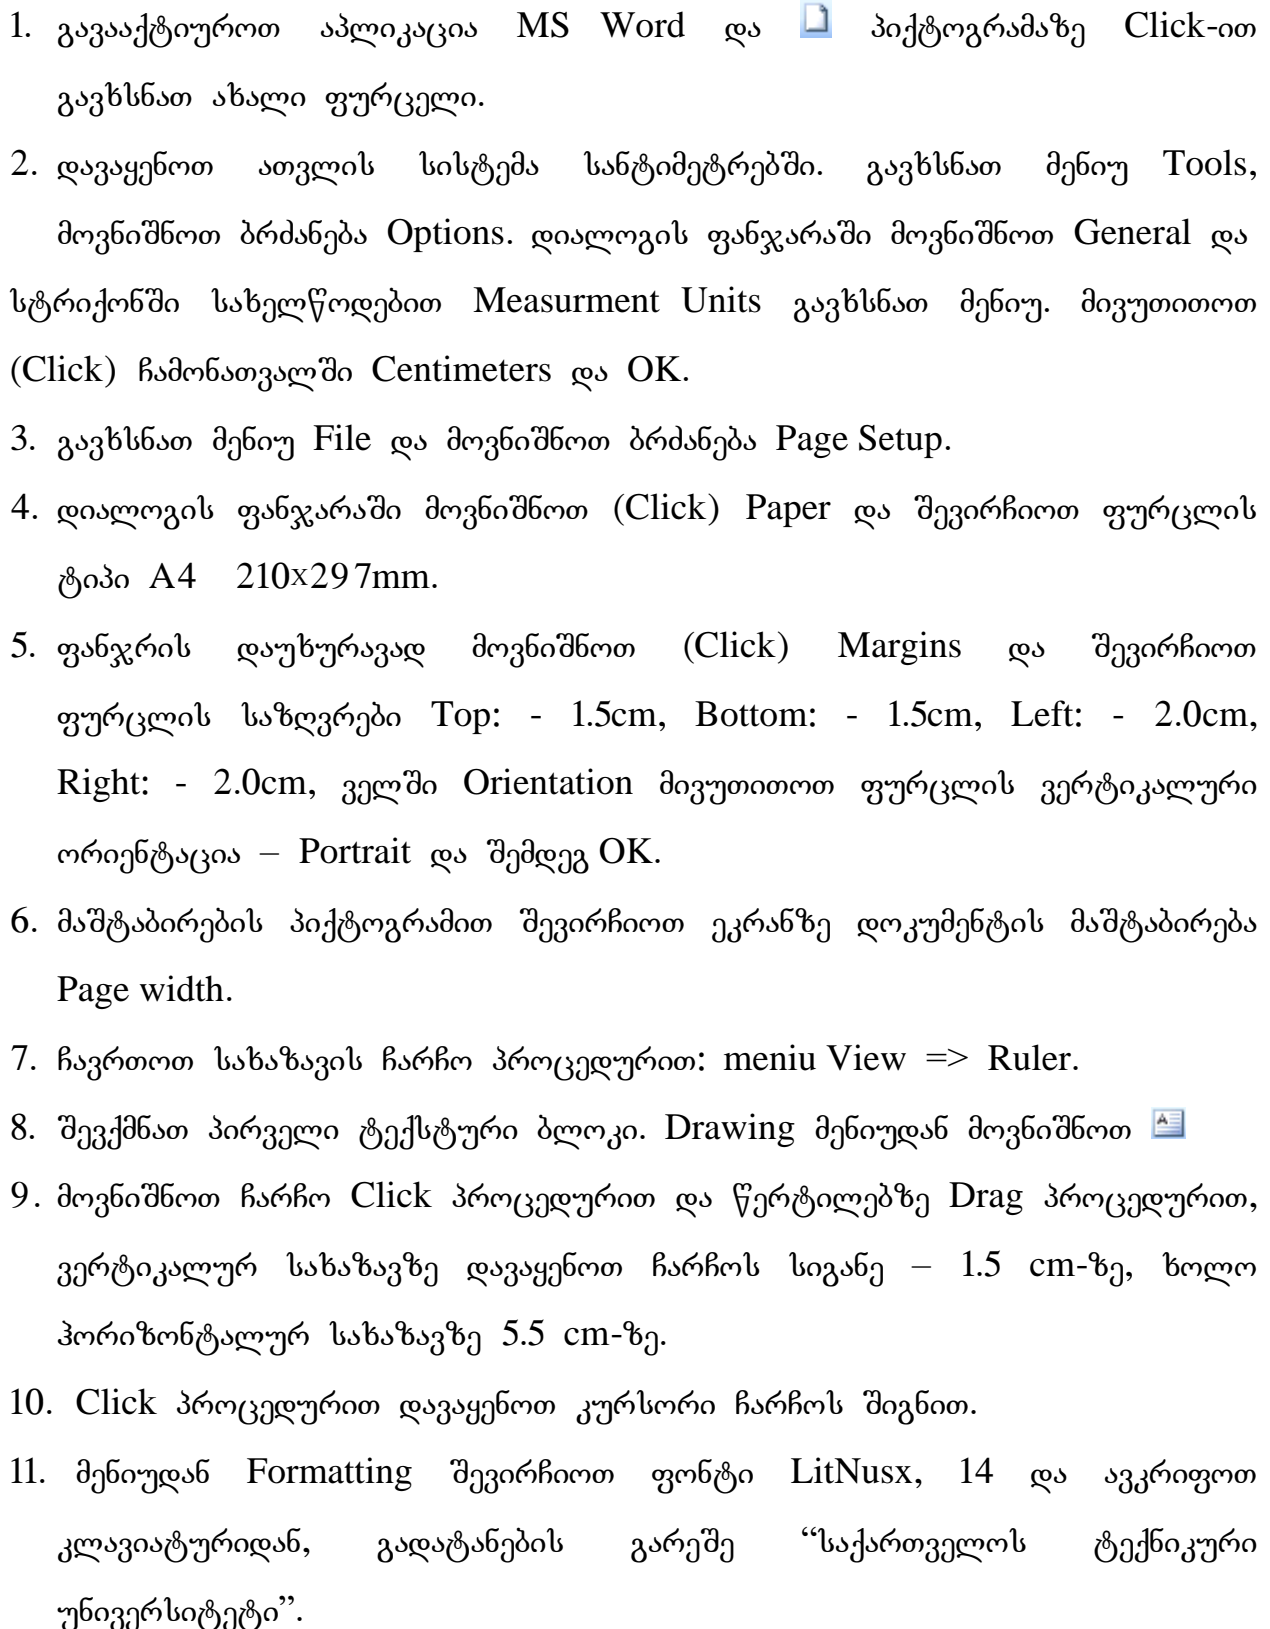 1. გავააქტიუროთ აპლიკაცია MS Word და პიქტოგრამაზე Click-ით
გავხსნათ ახალი ფურცელი.
2. დავაყენოთ ათვლის სისტემა სანტიმეტრებში. გავხსნათ მენიუ Tools,
მოვნიშნოთ ბრძანება Options. დიალოგის ფანჯარაში მოვნიშნოთ General და
სტრიქონში სახელწოდებით Measurment Units გავხსნათ მენიუ. მივუთითოთ
(Click) ჩამონათვალში Centimeters და OK.
3. გავხსნათ მენიუ File და მოვნიშნოთ ბრძანება Page Setup.
4. დიალოგის ფანჯარაში მოვნიშნოთ (Click) Paper და შევირჩიოთ ფურცლის
ტიპი A4 210x297mm.
5. ფანჯრის დაუხურავად მოვნიშნოთ (Click) Margins და შევირჩიოთ
ფურცლის საზღვრები Top: - 1.5cm, Bottom: - 1.5cm, Left: - 2.0cm,
Right: - 2.0cm, ველში Orientation მივუთითოთ ფურცლის ვერტიკალური
ორიენტაცია – Portrait და შემდეგ OK.
6. მაშტაბირების პიქტოგრამით შევირჩიოთ ეკრანზე დოკუმენტის მაშტაბირება
Page width.
7. ჩავრთოთ სახაზავის ჩარჩო პროცედურით: meniu View => Ruler.
8. შევქმნათ პირველი ტექსტური ბლოკი. Drawing მენიუდან მოვნიშნოთ
9. მოვნიშნოთ ჩარჩო Click პროცედურით და წერტილებზე Drag პროცედურით,
ვერტიკალურ სახაზავზე დავაყენოთ ჩარჩოს სიგანე – 1.5 cm-ზე, ხოლო
ჰორიზონტალურ სახაზავზე 5.5 cm-ზე.
10. Click პროცედურით დავაყენოთ კურსორი ჩარჩოს შიგნით.
11. მენიუდან Formatting შევირჩიოთ ფონტი LitNusx, 14 და ავკრიფოთ
კლავიატურიდან, გადატანების გარეშე “საქართველოს ტექნიკური
უნივერსიტეტი”.